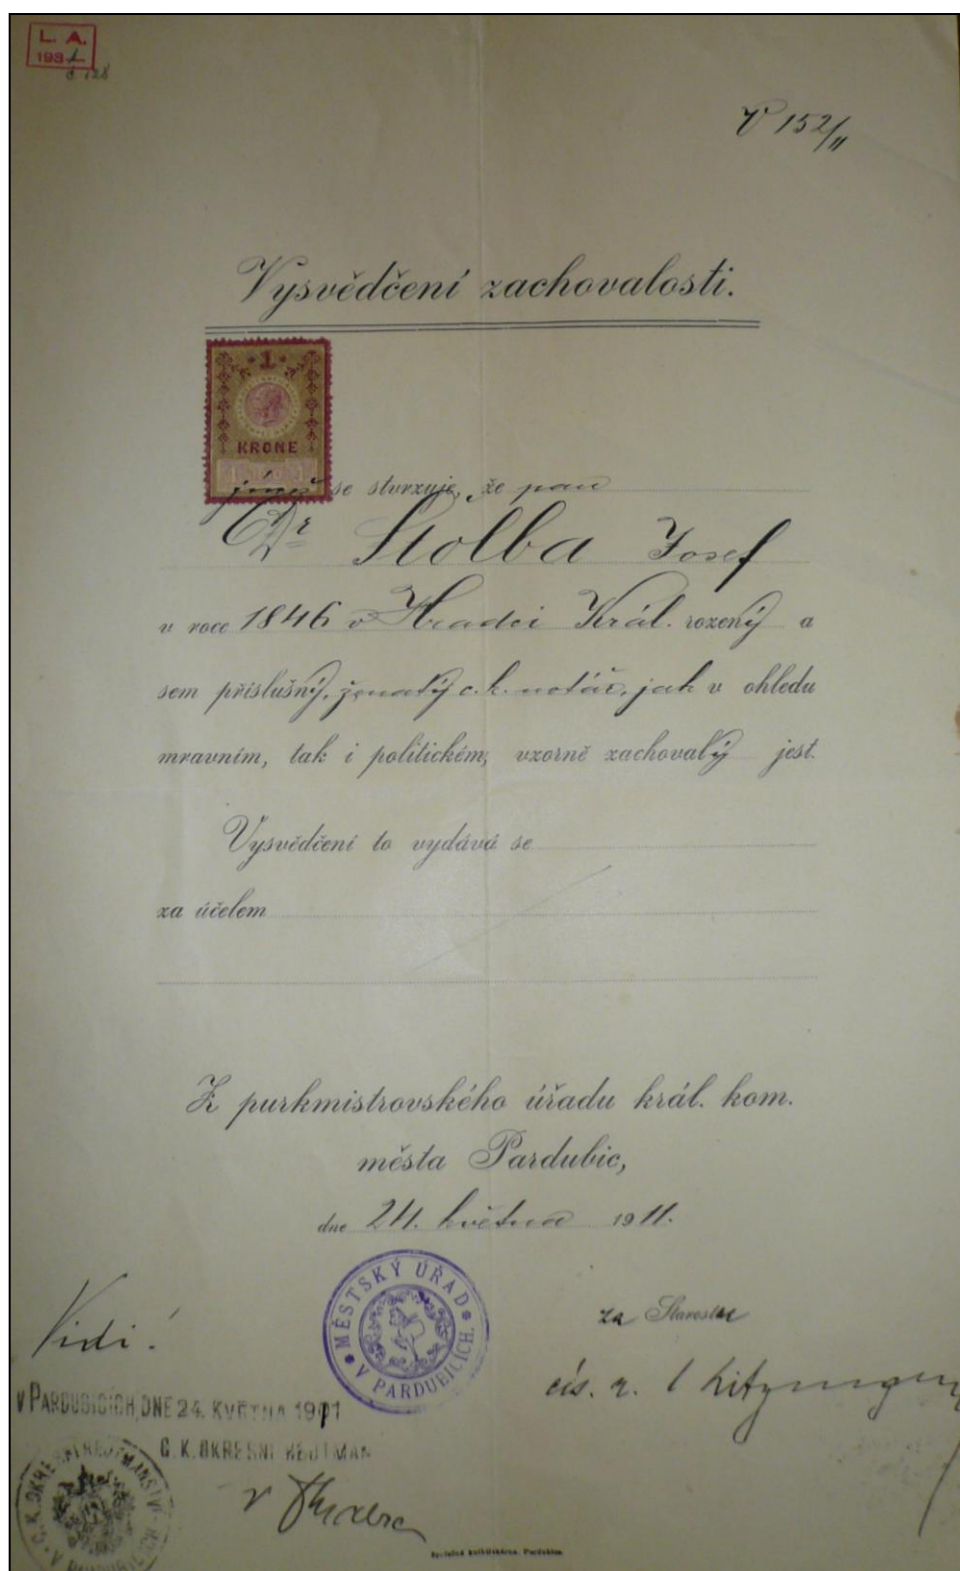 L. A.
198
č 128
152/II
Vysvědčení zachovalosti.
1
KRONE
jímž se stvrzuje, že pan
Dr Štolba Josef
v roce 1846 v Hradci Král. rozený a
sem příslušný, ženatý c. k. notář, jak v ohledu
mravním, tak i politickém, vzorně zachovalý jest.
Vysvědčení to vydává se
za účelem
Z purkmistrovského úřadu král. kom.
města Pardubic,
dne 24. května 1911.
MĚSTSKÝ ÚŘAD
V PARDUBICÍCH.
za Starostu
cís. r.
Vidi!
V PARDUBICÍCH, DNE 24. KVĚTNA 1911
C. K. OKRESNÍ HEJTMAN
C. K. OKRESNÍ HEJTMANSTVÍ
V